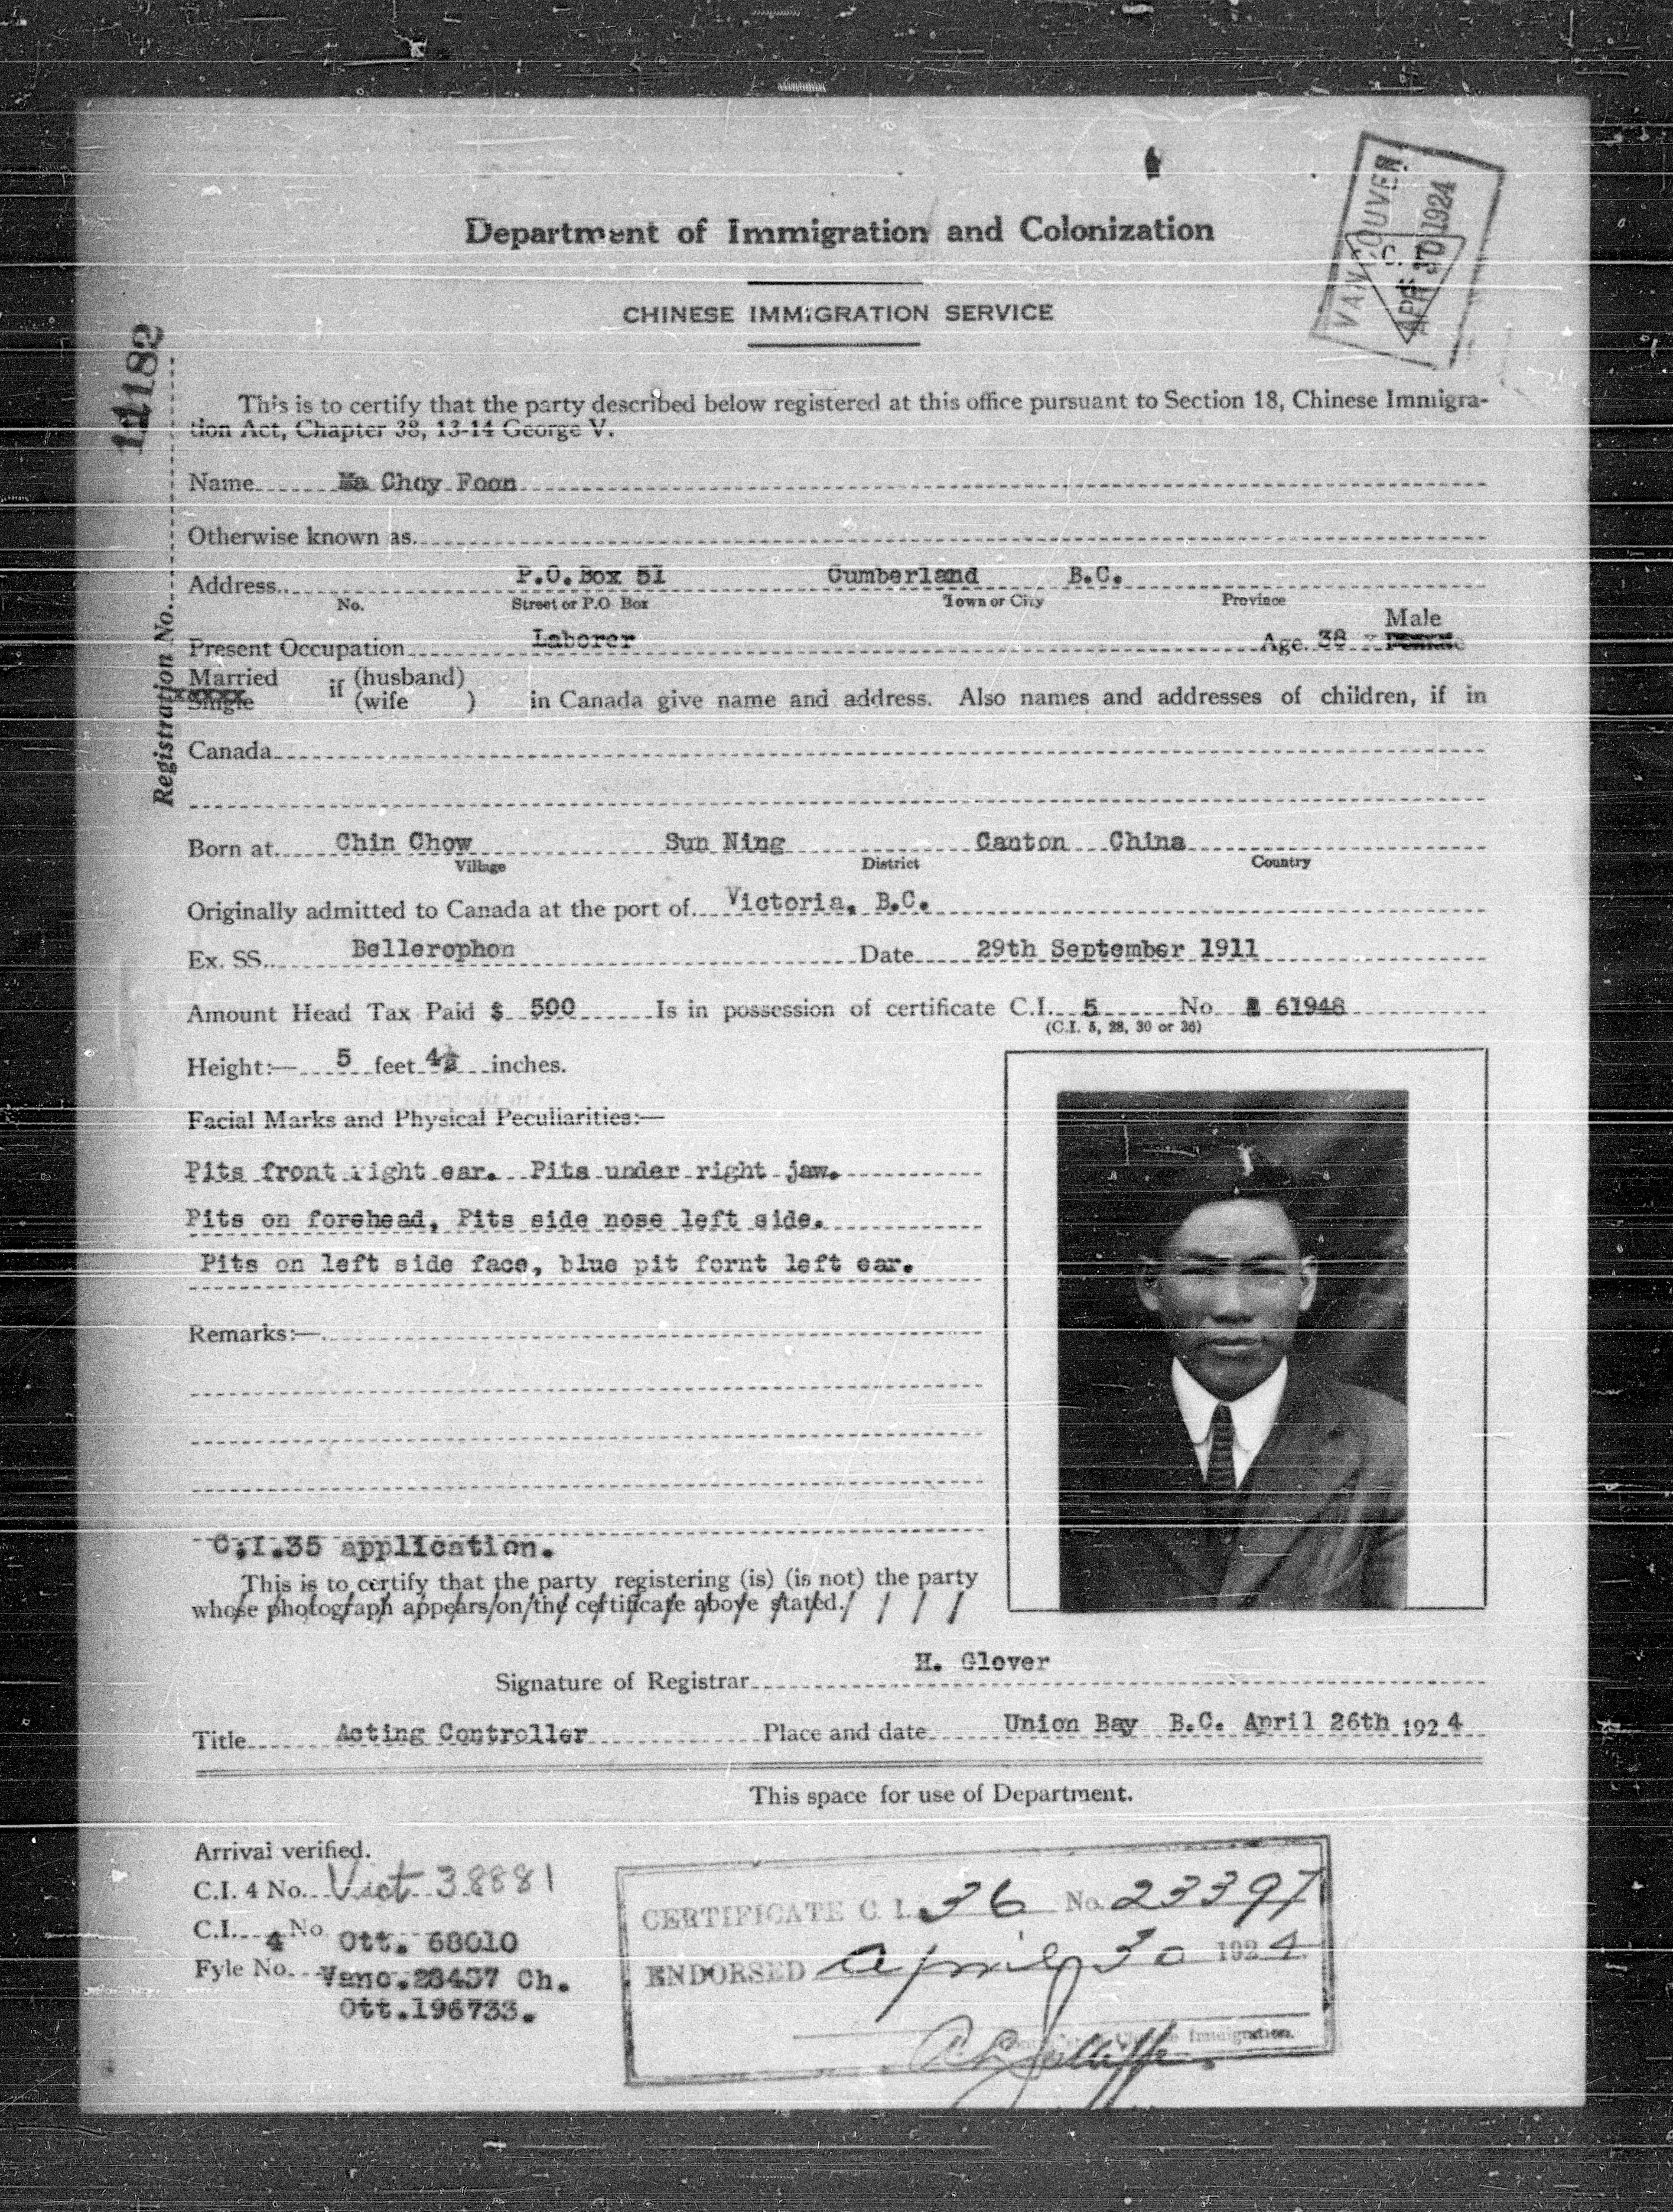 VANCOUVER
C.
APR 30 1924
Department of Immigration and Colonization
CHINESE IMMIGRATION SERVICE
Registration No. 11182
This is to certify that the party described below registered at this office pursuant to Section 18, Chinese Immigra-
tion Act, Chapter 38, 13-14 George V.
Name Ma Choy Foon
Otherwise known as
Address P.O. Box 51 Cumberland B.C.
No. Street or P.O Box Town or City Province
Male
Present Occupation Laborer Age 38 x Female
Married if (husband)
Single (wife ) in Canada give name and address. Also names and addresses of children, if in
Canada
Born at Chin Chow Sun Ning Canton China
Village District Country
Originally admitted to Canada at the port of Victoria, B.C.
Ex. SS. Bellerophon Date 29th September 1911
Amount Head Tax Paid $ 500 Is in possession of certificate C.I. 5 No 61948
(C.I. 5, 28, 30 or 36)
Height:— 5 feet 4½ inches.
Facial Marks and Physical Peculiarities:—
Pits front right ear. Pits under right jaw.
Pits on forehead, Pits side nose left side.
Pits on left side face, blue pit fornt left ear.
Remarks:—
C.I.35 application.
This is to certify that the party registering (is) (is not) the party
whose photograph appears on the certificate above stated. / / / /
H. Glover
Signature of Registrar
Title Acting Controller Place and date Union Bay B.C. April 26th 1924
This space for use of Department.
Arrival verified.
C.I. 4 No. Vict 38881
C.I. 4 No Ott. 68010
Fyle No. Vanc.28437 Ch.
Ott.196733.
CERTIFICATE C. I. 36 No. 23397
ENDORSED april 30 1924
Chinese Immigration.